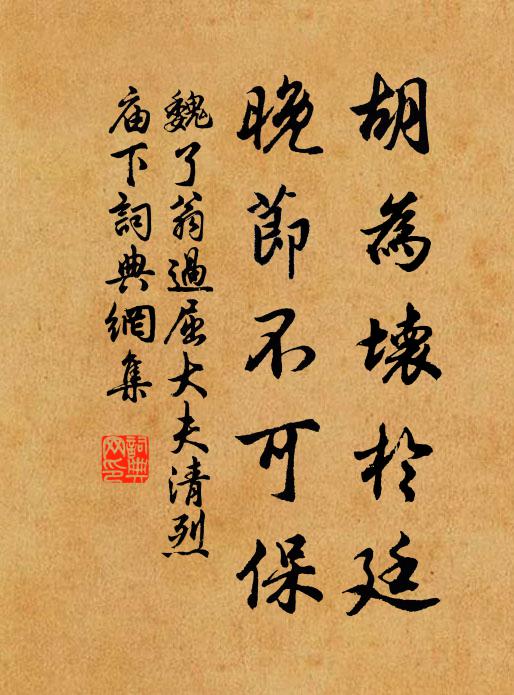 胡為壞於廷
晚節不可保
魏了翁過屈大夫清烈
庙下詞典網集
詞典網印